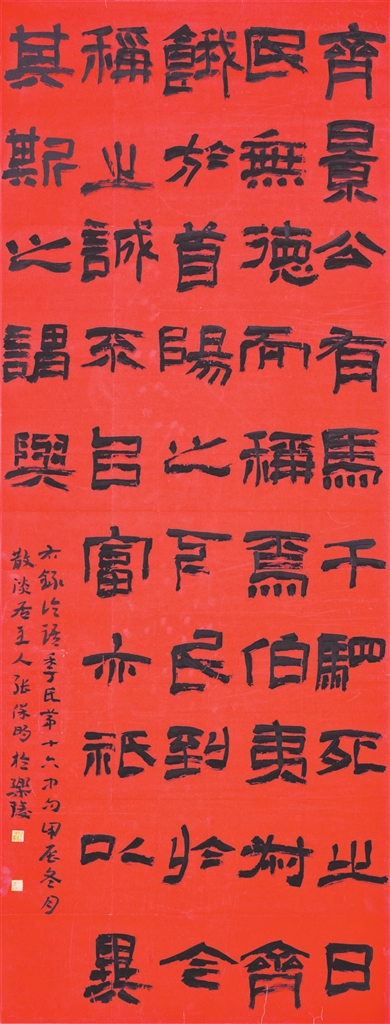 齊景公有馬千駟死之日
民無德而稱焉伯夷叔齊
餓於首陽之下民到於今
稱之誠不㠯富亦祇以異
其斯之謂與
亦錄论语季氏第十六中句甲辰冬月
散淡居主人张保明於樂陵